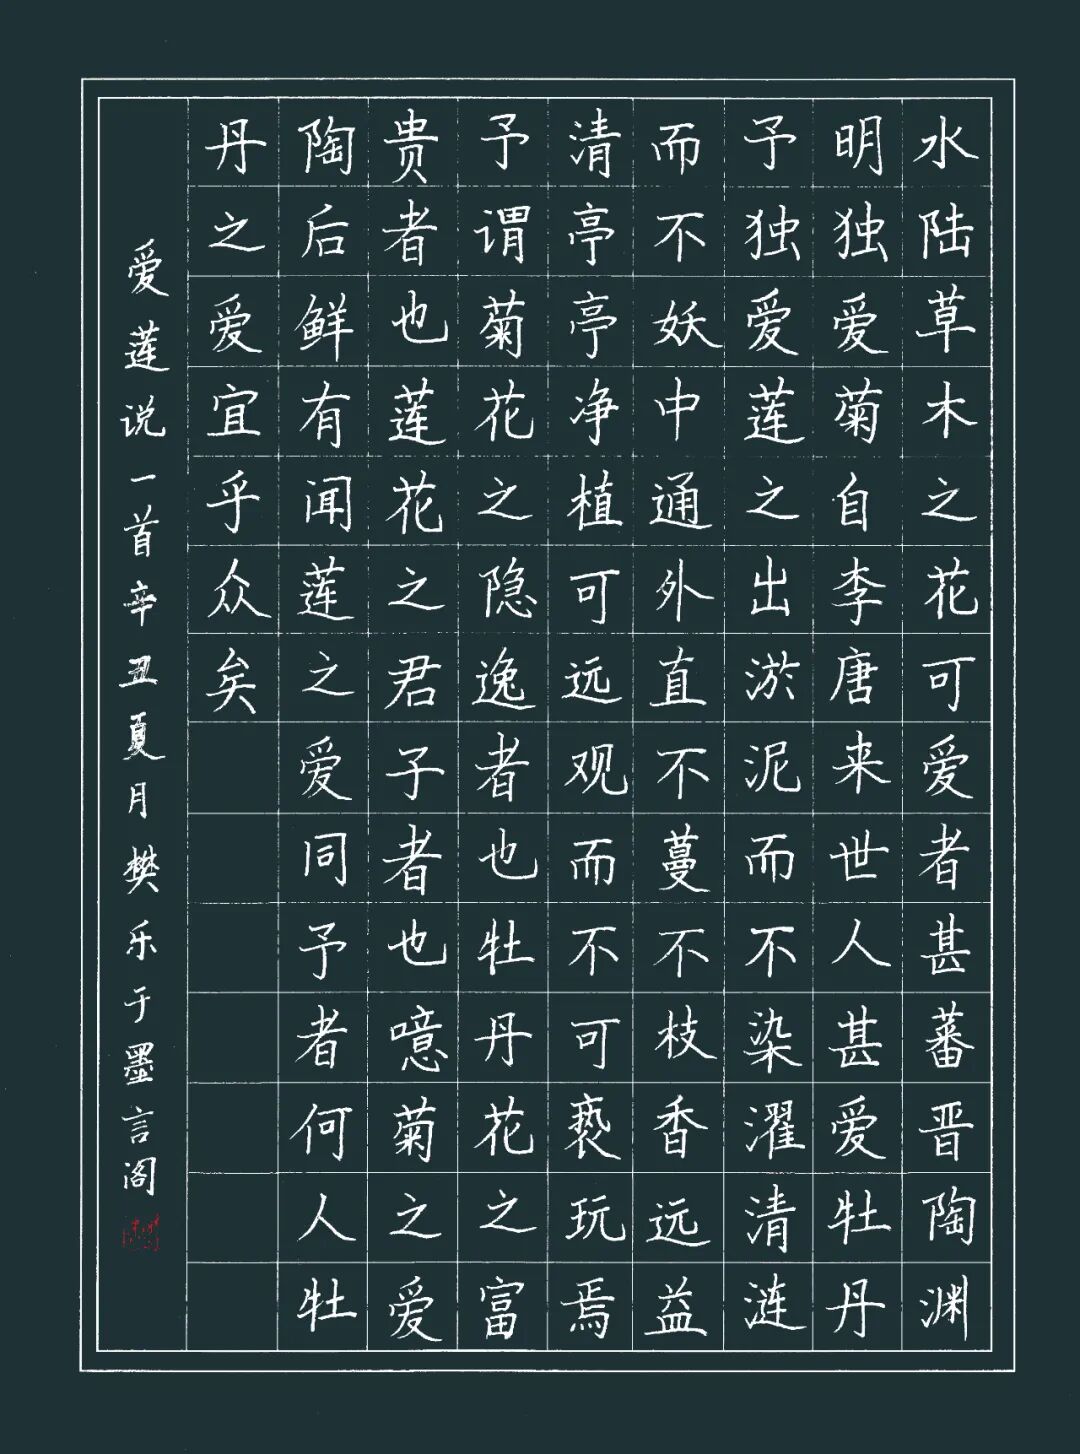 水陆草木之花可爱者甚蕃晋陶渊
明独爱菊自李唐来世人甚爱牡丹
予独爱莲之出淤泥而不染濯清涟
而不妖中通外直不蔓不枝香远益
清亭亭净植可远观而不可亵玩焉
予谓菊花之隐逸者也牡丹花之富
贵者也莲花之君子者也噫菊之爱
陶后鲜有闻莲之爱同予者何人牡
丹之爱宜乎众矣
爱莲说一首辛丑夏月樊乐于墨言阁